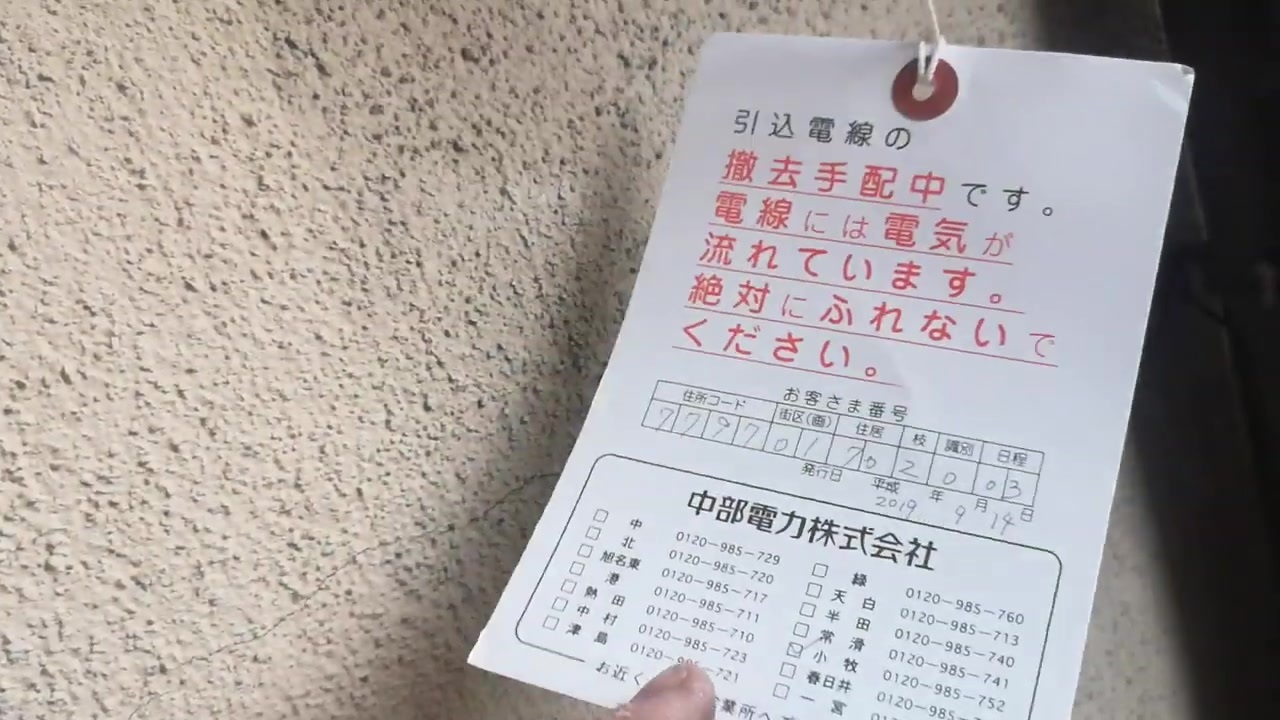 引込電線の
撤去手配中です。
電線には電気が
流れています。
絶対にふれないで
ください。
お客さま番号
住所コード 街区(画) 住居 枝 識別 日程
7797 01 70 2 0 03
発行日 平成 2019 年 9 月 14 日
中部電力株式会社
□ 中 0120-985-729
□ 北 0120-985-720
□ 旭名東 0120-985-717
□ 港 0120-985-711
□ 熱田 0120-985-710
□ 中村 0120-985-723
□ 津島 0120-985-721
□ 緑 0120-985-760
□ 天白 0120-985-713
□ 半田 0120-985-740
□ 常滑 0120-985-741
☑ 小牧 0120-985-752
□ 春日井
□ 一宮
お近く
営業所へ